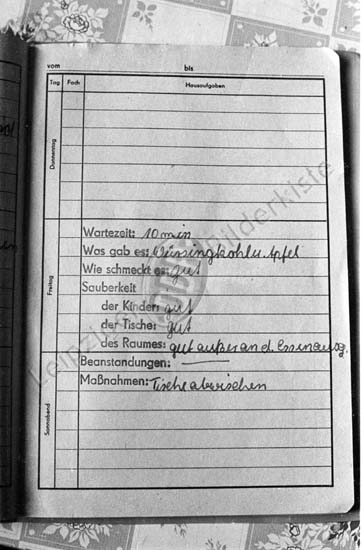 vom bis
Tag Fach Hausaufgaben
Donnerstag
Freitag
Wartezeit: 10 min
Was gab es: Wirsingkohlu. Apfel
Wie schmeckt es: gut
Sauberkeit
der Kinder: gut
der Tische: gut
des Raumes: gut außer an d. Essenausg.
Beanstandungen: —
Maßnahmen: Tische abwischen
Sonnabend
Leipziger Bilderkiste